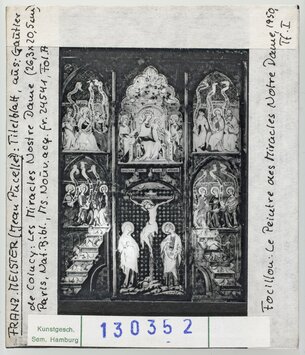 FRANZ. MEISTER (Jean Pucelle): Titelblatt, aus: Gautier
de Coincy: Les Miracles Nostre Dame (26,3x20,5cm)
Paris, Nat. Bibl. Ms. Nouv. acq. fr. 24541, Fol. A
Focillon: Le Peintre des Miracles Notre Dame, 1950,
Tf. I
Kunstgesch.
Sem. Hamburg
130352